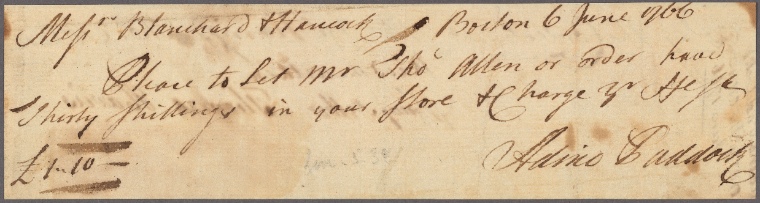 Messrs Blanchard & Hancock Boston 6 June 1766
Please to Let Mr Thos Allen or order have
Thirty Shillings in your Store & Charge yr Hes
£1..10
Adino Paddock